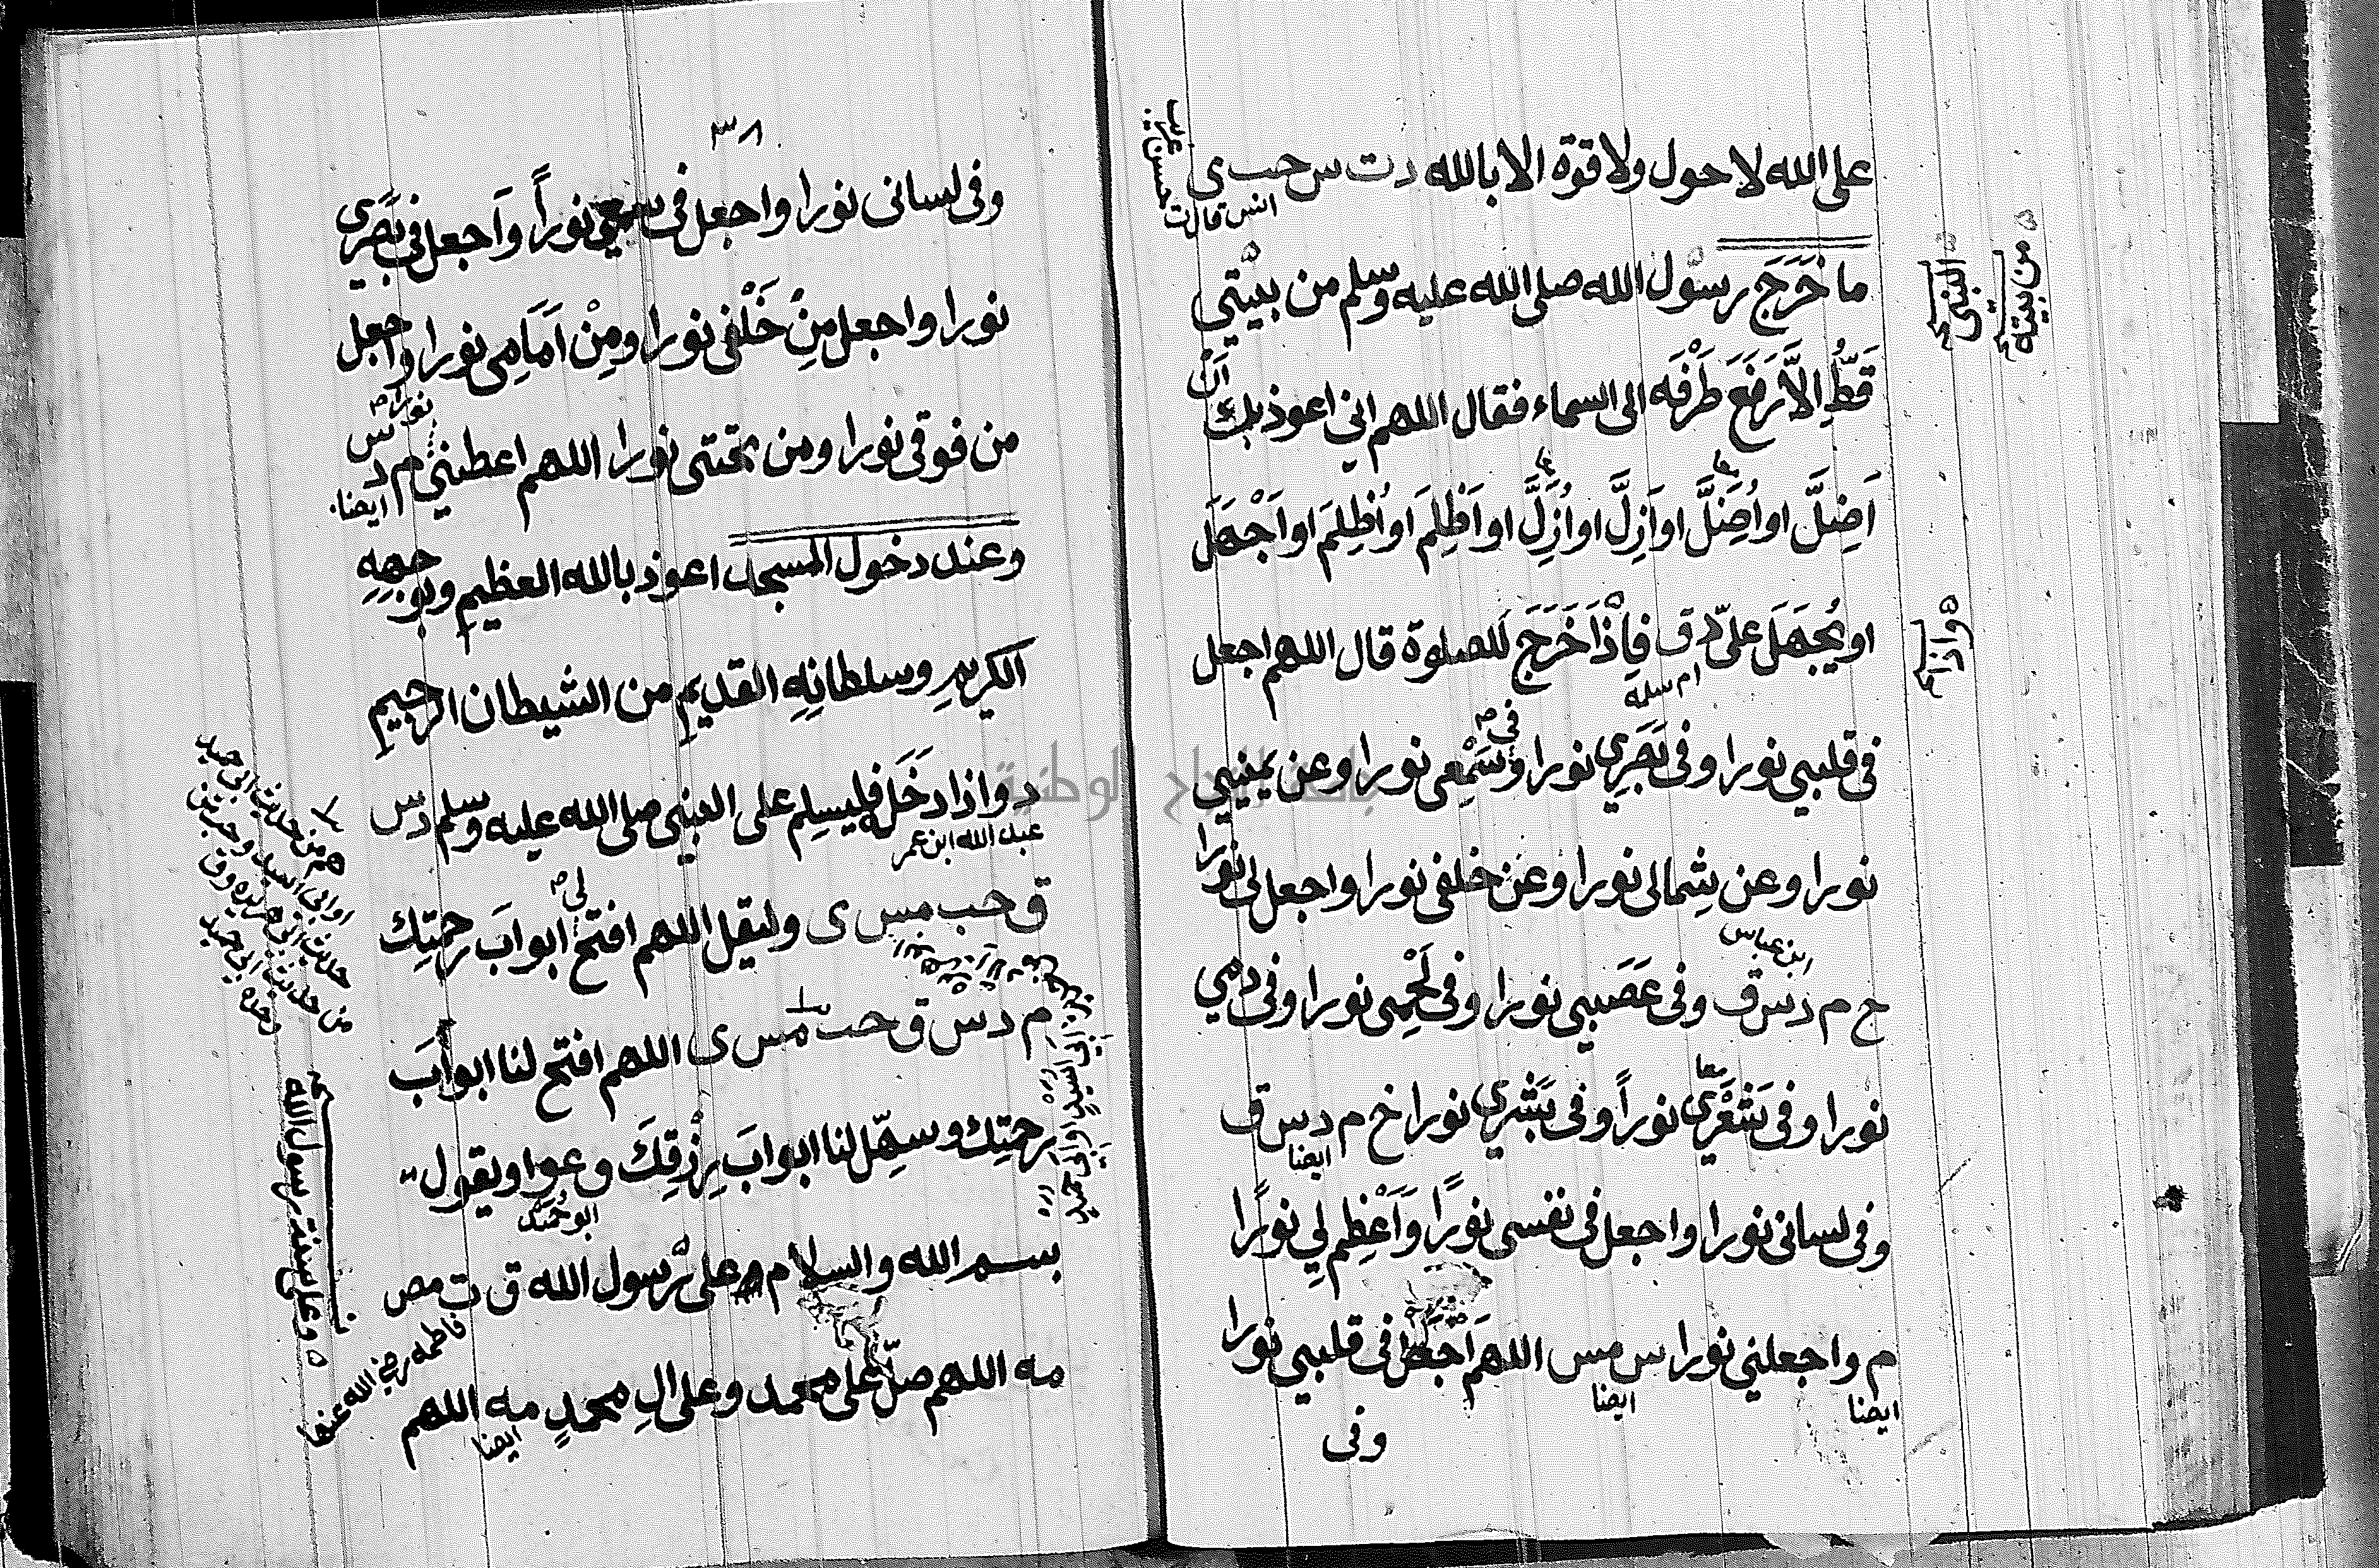 على الله لا حول ولا قوة الا بالله د ت س حب ى
انس قالت
ما خَرَجَ رسُول الله صلى الله عليه وسلم من بيْتي
قَطُّ اِلاَّ رَفَعَ طَرْفَه الى السماء فقال اللهم اني اعوذ بك اَنْ
اَضِلَّ او اُضَلَّ او اَزِلَّ او اُزَلَّ او اَظْلِمَ او اُظْلَمَ او اَجْهَلَ
او يُجْهَلَ علىّ د ق فاِذَا خَرَجَ للصلوة قال اللهم اجعل
ام سلمه
فى قلبي نورا وفى بَصَري نورا وفي سَمْعى نورا وعن يميني
نورا وعن شِمالى نورا وعن خلفى نورا واجعل لى نورا
ابن عباس
خ م د س ق وفى عَصَبي نورا وفى لَحْمِى نورا وفى دمي
نورا وفى شَعْرَي نوراً وفى بَشَري نورا خ م د س ق
ايضا
وفى لسانى نورا واجعل فى نفسى نورًا وَاَعْظِم لِي نورًا
م واجعلني نورا س مس اللهم اجعل فى قلبي نورا
ايضا ايضا
وفى
النبى
من بيته
واذا
٣٨
وفى لسانى نورا واجعل فى سمعي نوراً واَجعل فى بَصَرى
نورا واجعل مِنْ خَلْفى نورا ومِنْ اَمَامِى نورا واجعل
من فوقى نورا ومن تحتى نورا اللهم اعطني نورا م د س
ايضا
وعند دخول المسجد اعوذ بالله العظيم وبوجهِهِ
الكريمِ وسلطانِهِ القديمِ من الشيطان الرجيمِ
د واذا دخَل فليسلِم على النبي صلى الله عليه وسلم د س
عبد الله ابن عمر
ق حب مس ى وليقل اللهم افتح لي ابوابَ رحمتِك
م د س ق حب مس ى اللهم افتح لنا ابوابَ
رحمتِك وسهّل لنا ابوابَ رِزْقِكَ عو او يقول
ابو حُمَيد
بسم الله والسلام على رسول الله ق ت مص
فاطمه رضي الله عنها
مه اللهم صلّ على محمد وعلى الِ محمدٍ مه اللهم
ايضا
وعلى سنة رسول الله
جامعة النجاح الوطنية